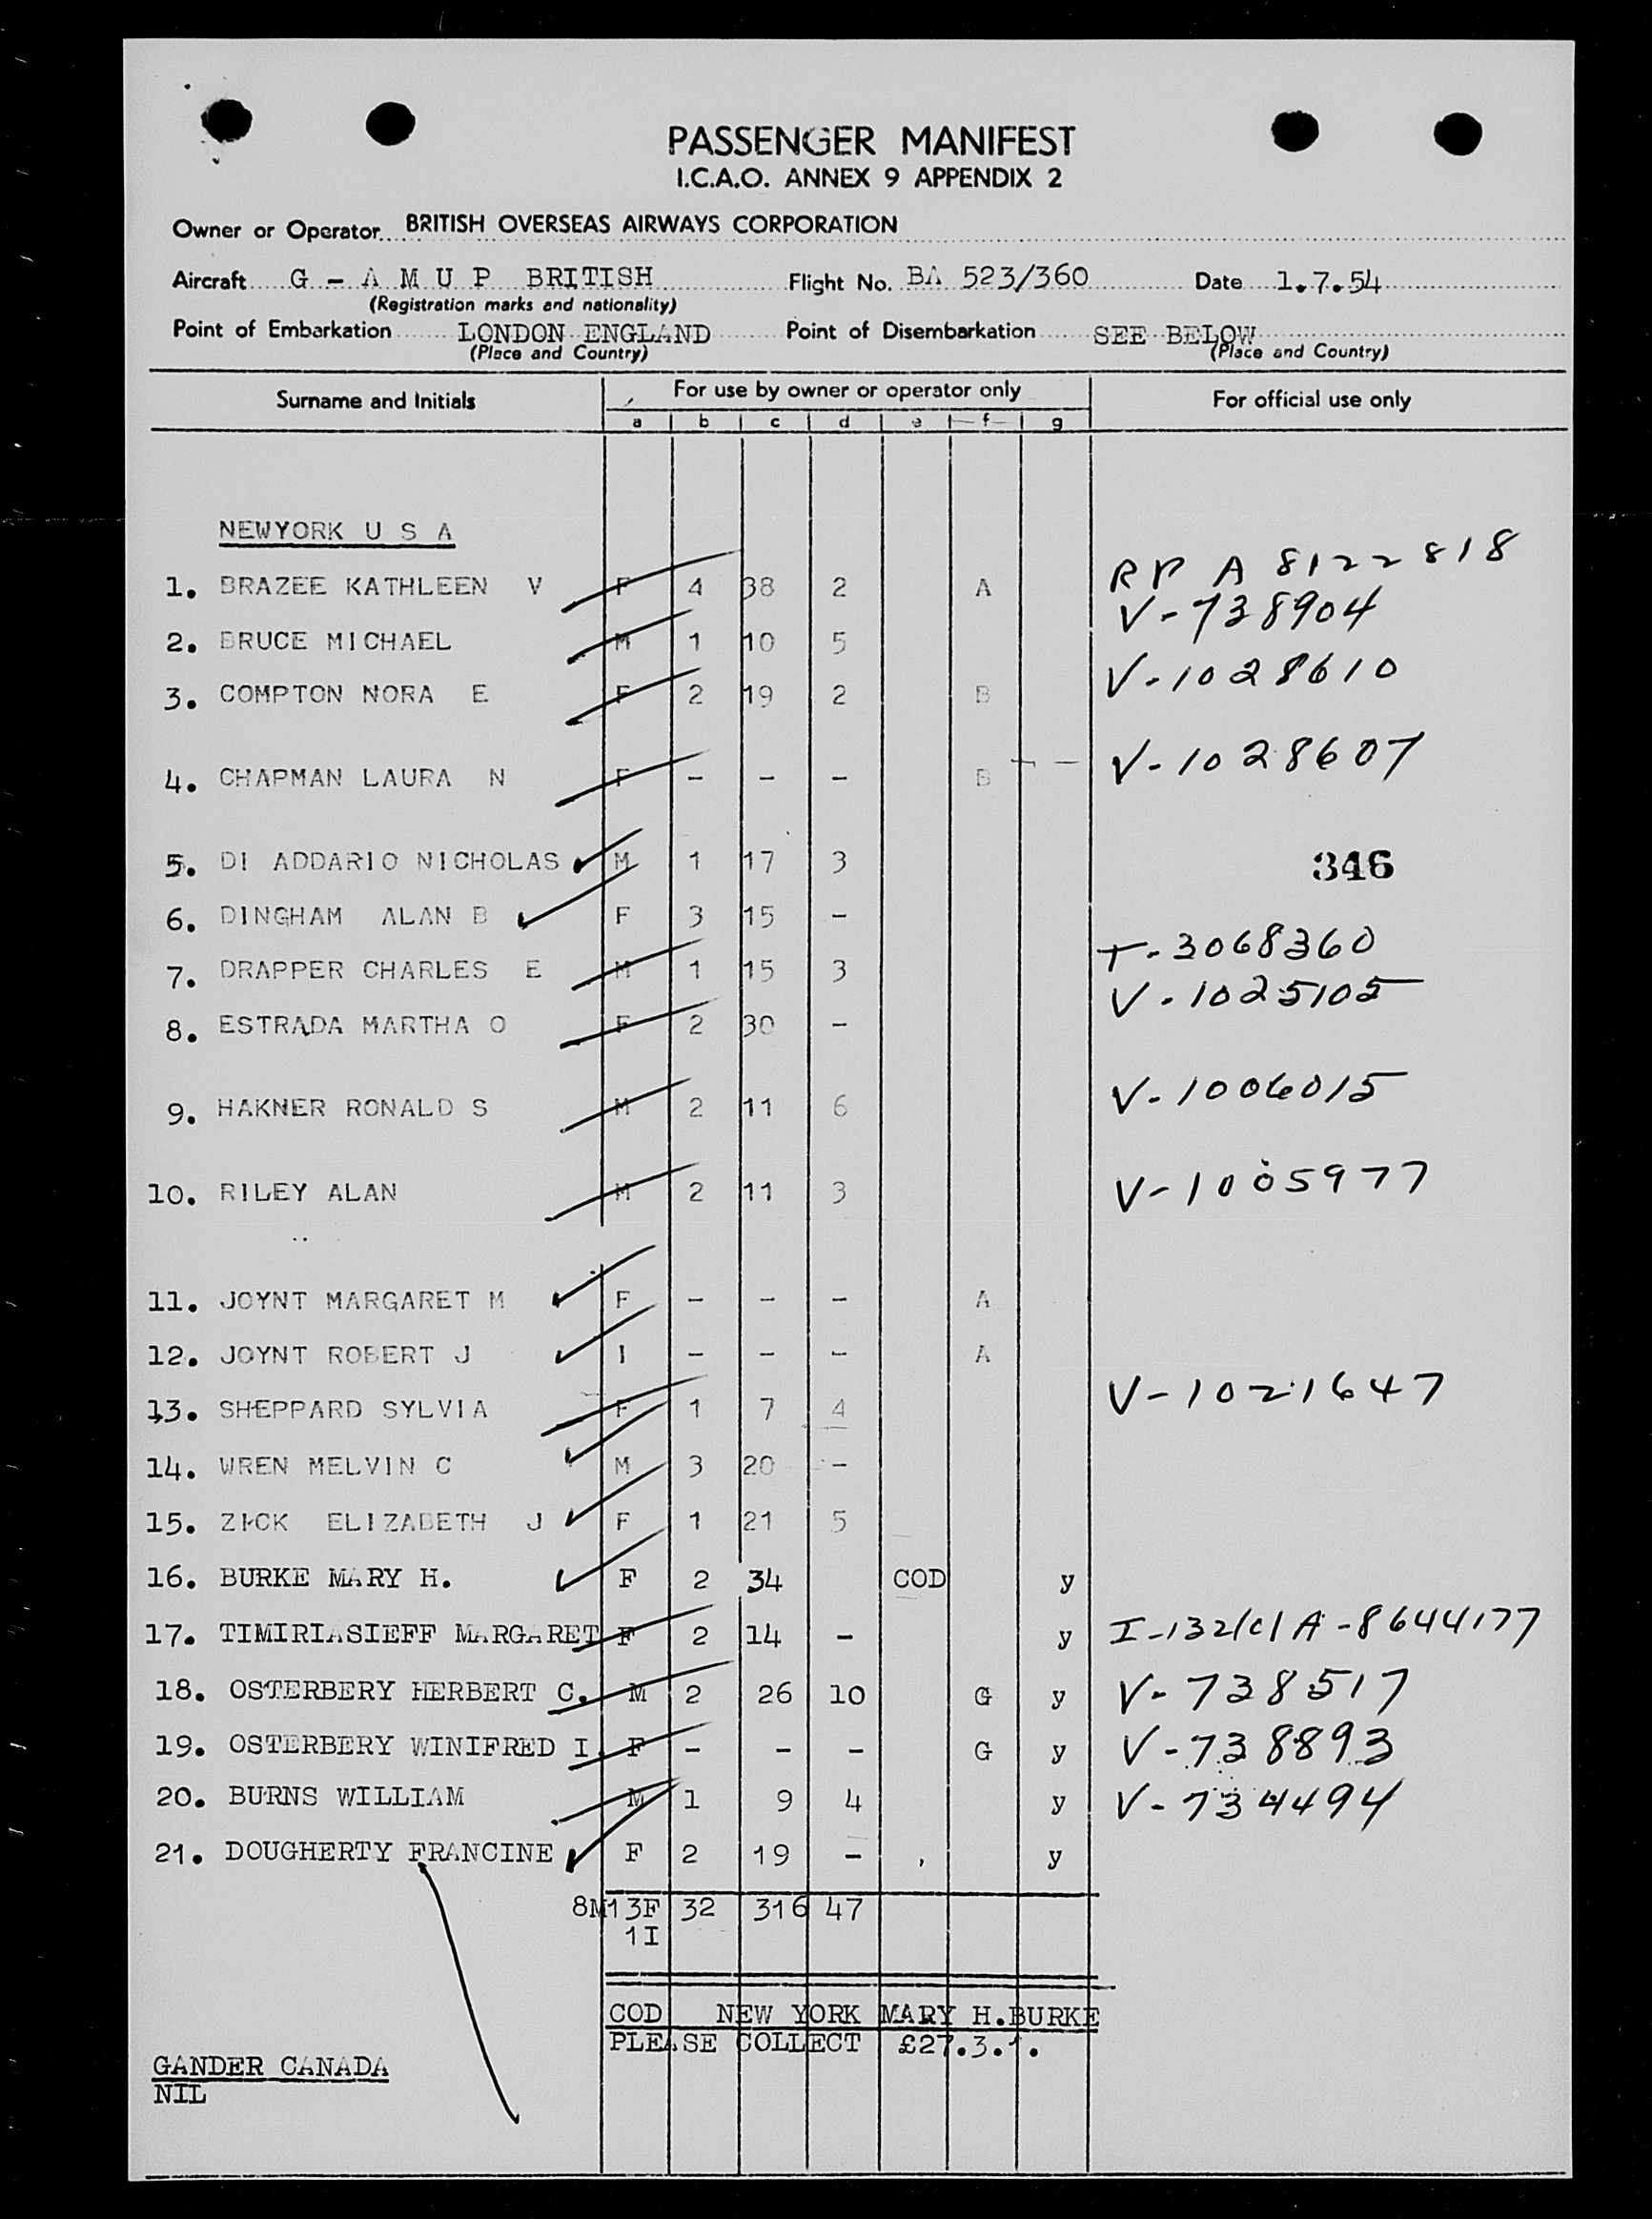 PASSENGER MANIFEST
I.C.A.O. ANNEX 9 APPENDIX 2
Owner or Operator BRITISH OVERSEAS AIRWAYS CORPORATION
Aircraft G - A M U P BRITISH Flight No. BA 523/360 Date 1.7.54
(Registration marks and nationality)
Point of Embarkation LONDON ENGLAND Point of Disembarkation SEE BELOW
(Place and Country) (Place and Country)
Surname and Initials For use by owner or operator only For official use only
a b c d e f g
NEWYORK U S A
1. BRAZEE KATHLEEN V F 4 38 2 A RP A 8122818
V-738904
2. BRUCE MICHAEL M 1 10 5
3. COMPTON NORA E F 2 19 2 B V-1028610
4. CHAPMAN LAURA N F - - - B V-1028607
5. DI ADDARIO NICHOLAS M 1 17 3 346
6. DINGHAM ALAN B F 3 15 -
7. DRAPPER CHARLES E M 1 15 3 T-3068360
8. ESTRADA MARTHA O F 2 30 - V-1025105
9. HAKNER RONALD S M 2 11 6 V-1006015
10. RILEY ALAN M 2 11 3 V-1005977
11. JOYNT MARGARET M F - - - A
12. JOYNT ROBERT J I - - - A
13. SHEPPARD SYLVIA F 1 7 4 V-1021647
14. WREN MELVIN C M 3 20 -
15. ZICK ELIZABETH J F 1 21 5
16. BURKE MARY H. F 2 34 COD y
17. TIMIRIASIEFF MARGARET F 2 14 - y I-132(c) A-8644177
18. OSTERBERY HERBERT C. M 2 26 10 G y V-738517
19. OSTERBERY WINIFRED I. F - - - G y V-738893
20. BURNS WILLIAM M 1 9 4 y V-734494
21. DOUGHERTY FRANCINE F 2 19 - y
8M13F 32 316 47
1I
COD NEW YORK MARY H.BURKE
PLEASE COLLECT £27.3.1.
GANDER CANADA
NIL